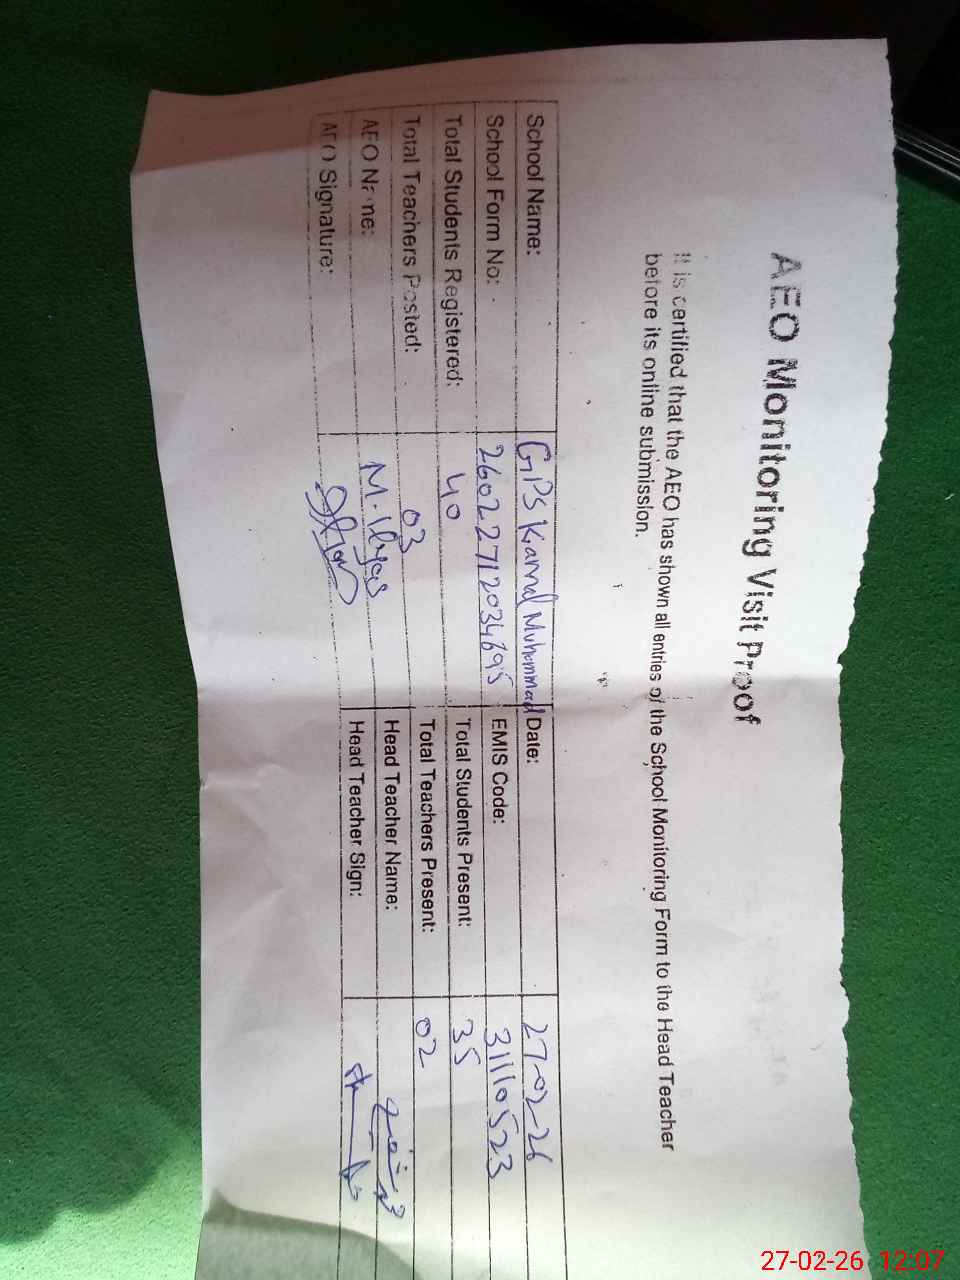 AEO Monitoring Visit Proof
It is certified that the AEO has shown all entries of the School Monitoring Form to the Head Teacher
before its online submission.
School Name: GPS Kamal Muhammad Date: 27-02-26
School Form No: 26022712034695 EMIS Code: 31110523
Total Students Registered: 40 Total Students Present: 35
Total Teachers Posted: 03 Total Teachers Present: 02
AEO Name: M. Ilyas Head Teacher Name:
AEO Signature: Head Teacher Sign:
27-02-26 12:07